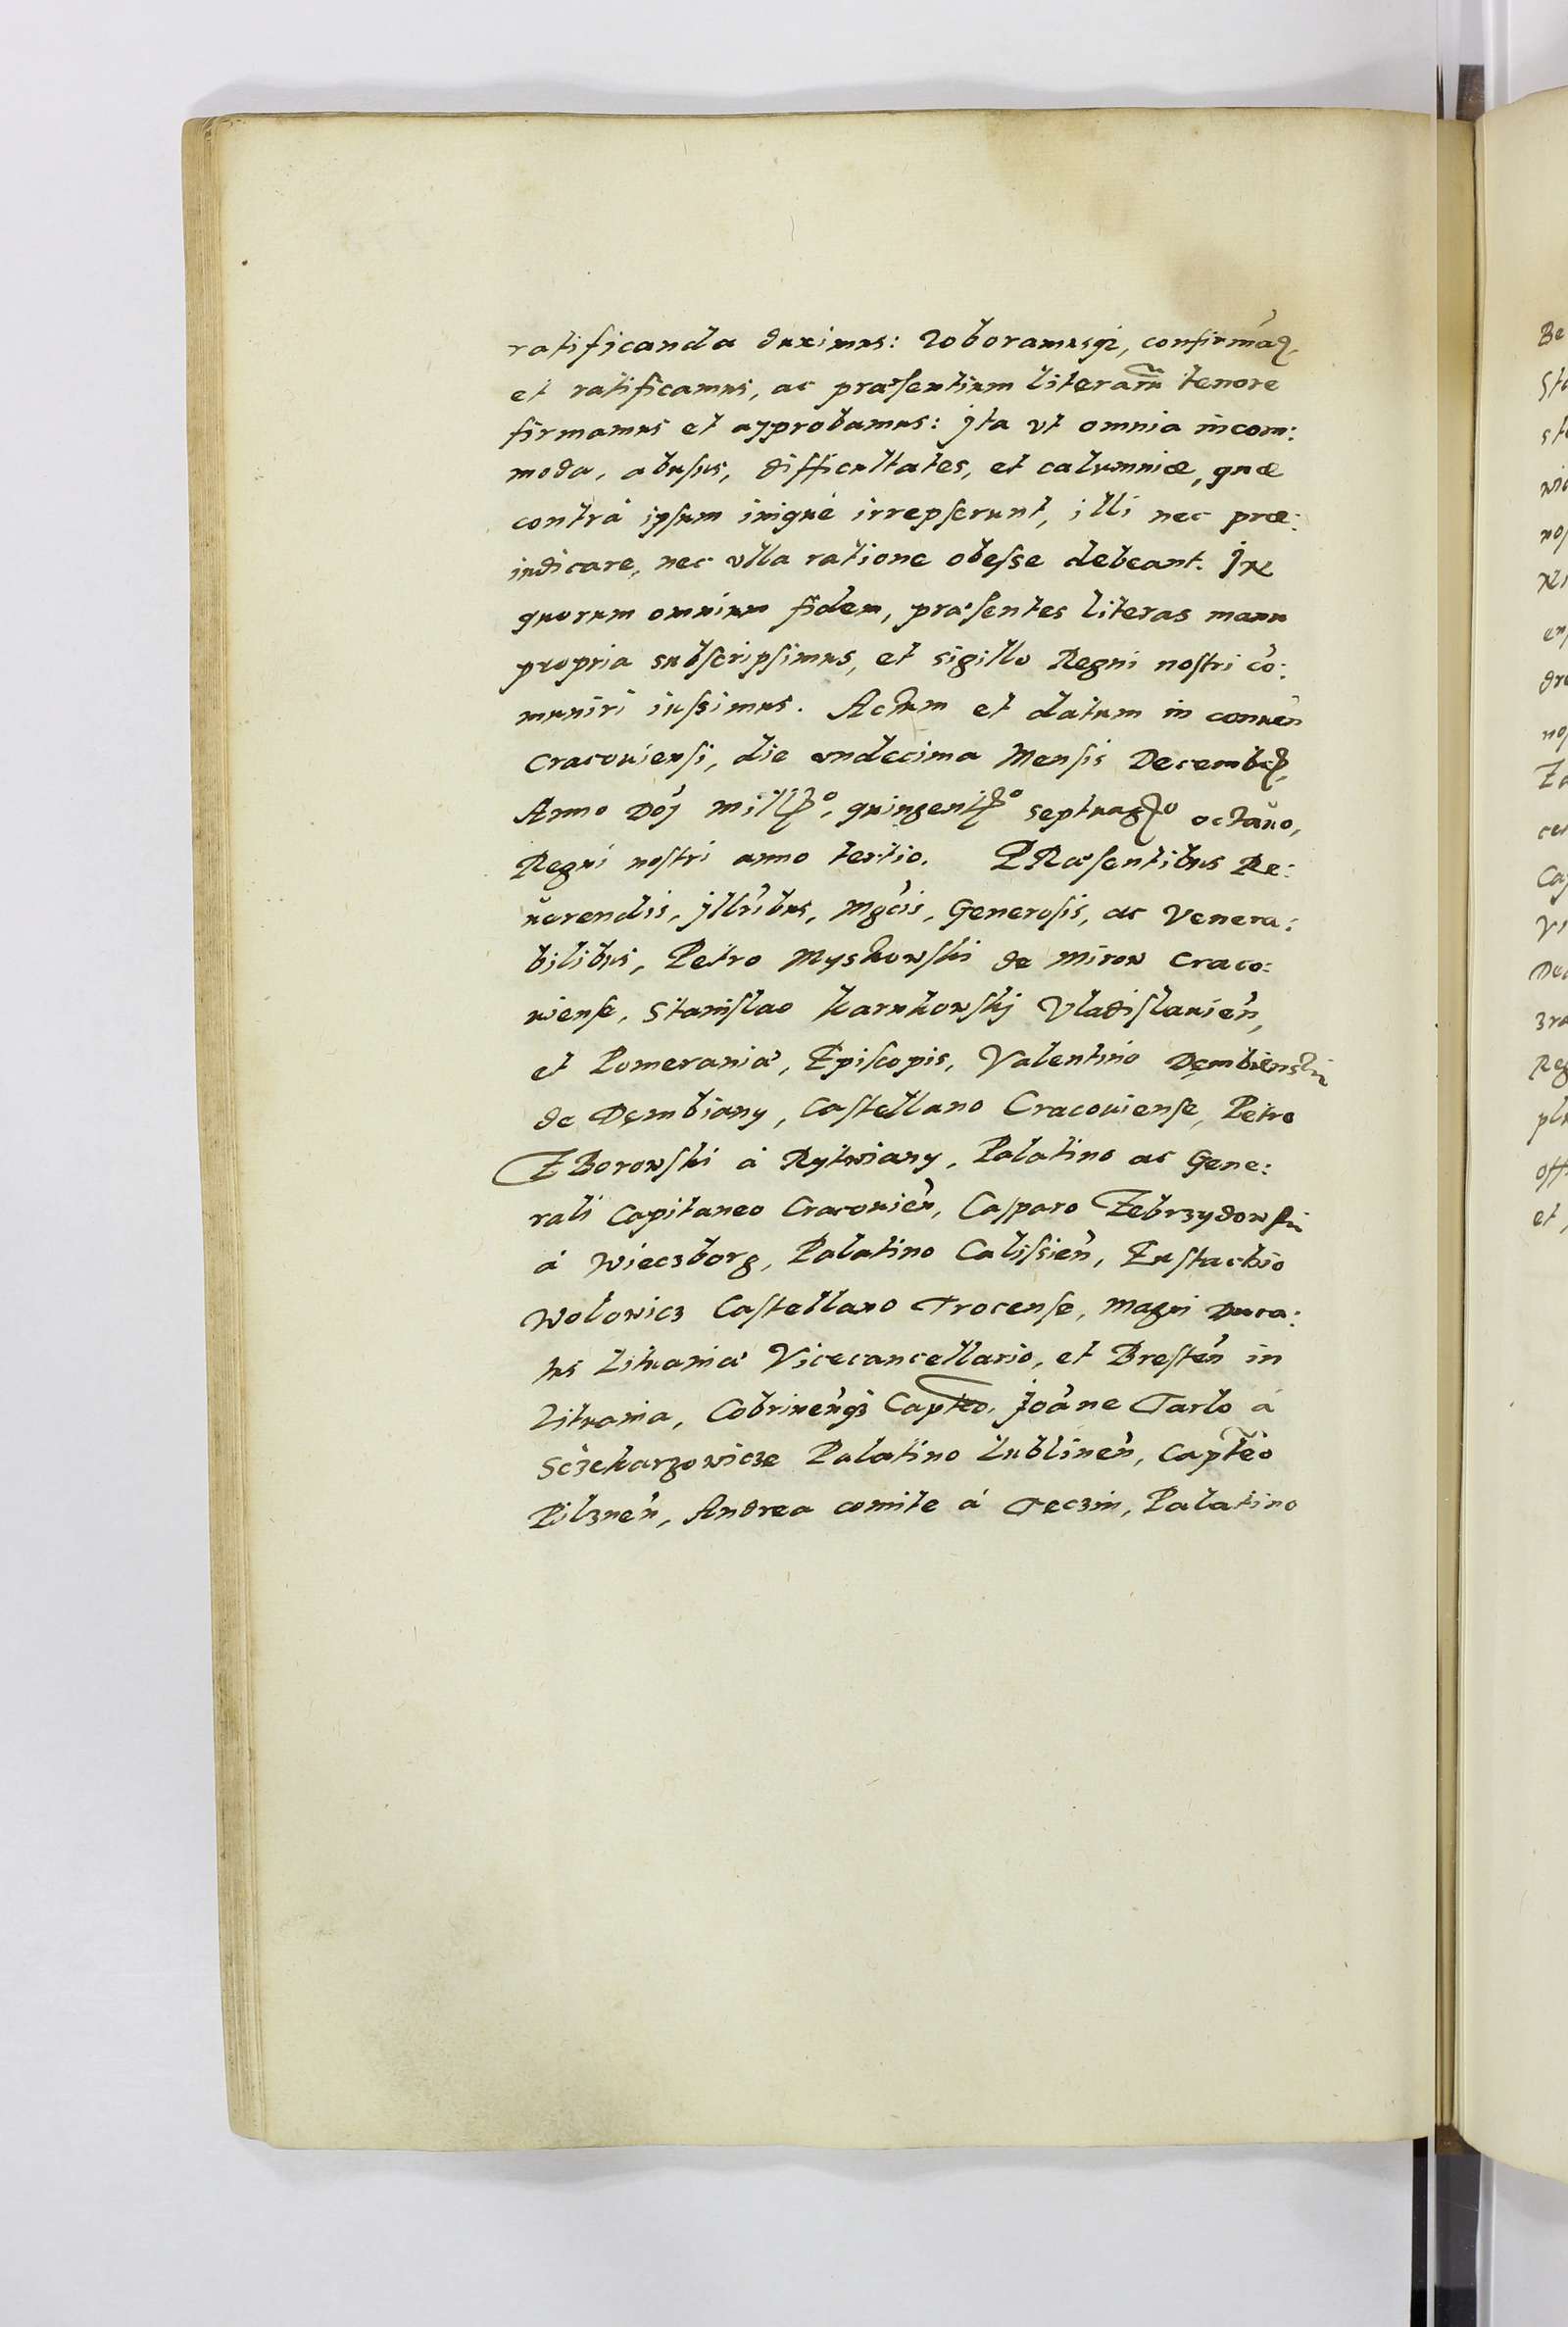 ratificanda duximus: Roboramusq3, confirmaɱ,
et ratificamus, ac præsentium literarũ tenore
firmamus et approbamus: jta vt omnia incom:
moda, abusus, difficultates, et calumniæ, quæ
contrà ipsum iniquè irrepserunt, illi nec præ:
iudicare, nec vlla ratione obesse debeant. Jn
quorum omnium fidem, præsentes literas manu
propria subscripsimus, et sigillo Regni nostri cõ:
muniri iussimus. Actum et datum in conuen̉
Cracouiensi, die vndecima Mensis Decemb,
Anno Doj mill°, quingent° septuag° octauo,
Regni nostri anno tertio. PRæsentibus Re:
uerendis, jllribus, Mgcis, Generosis, ac Venera:
bilibus, Petro Myskowski de Mirow Craco:
uiense, Stanislao Karnkowskj Vladislauien̉,
et Pomeraniæ, Episcopis, Valentino Dęmbienski
de Dęmbiany, Castellano Cracouiense, Petro
ZBorowski à Rytwiany, Palatino ac Gene:
rali Capitaneo Cracouien̉, Casparo Zebrzydowski
à Wieczborg, Palatino Calissien̉, Eustachio
Wolowicz Castellano Trocense, Magni Duca:
tus Lituaniæ Vicecancellario, et Bresten̉ in
Lituania, Cobrinen̉q3 Capteo, Joãne Tarlo à
Sczekarzowicze Palatino Lublinen̉, Capteo
Pilznen̉, Andrea comite à Teczin, Palatino